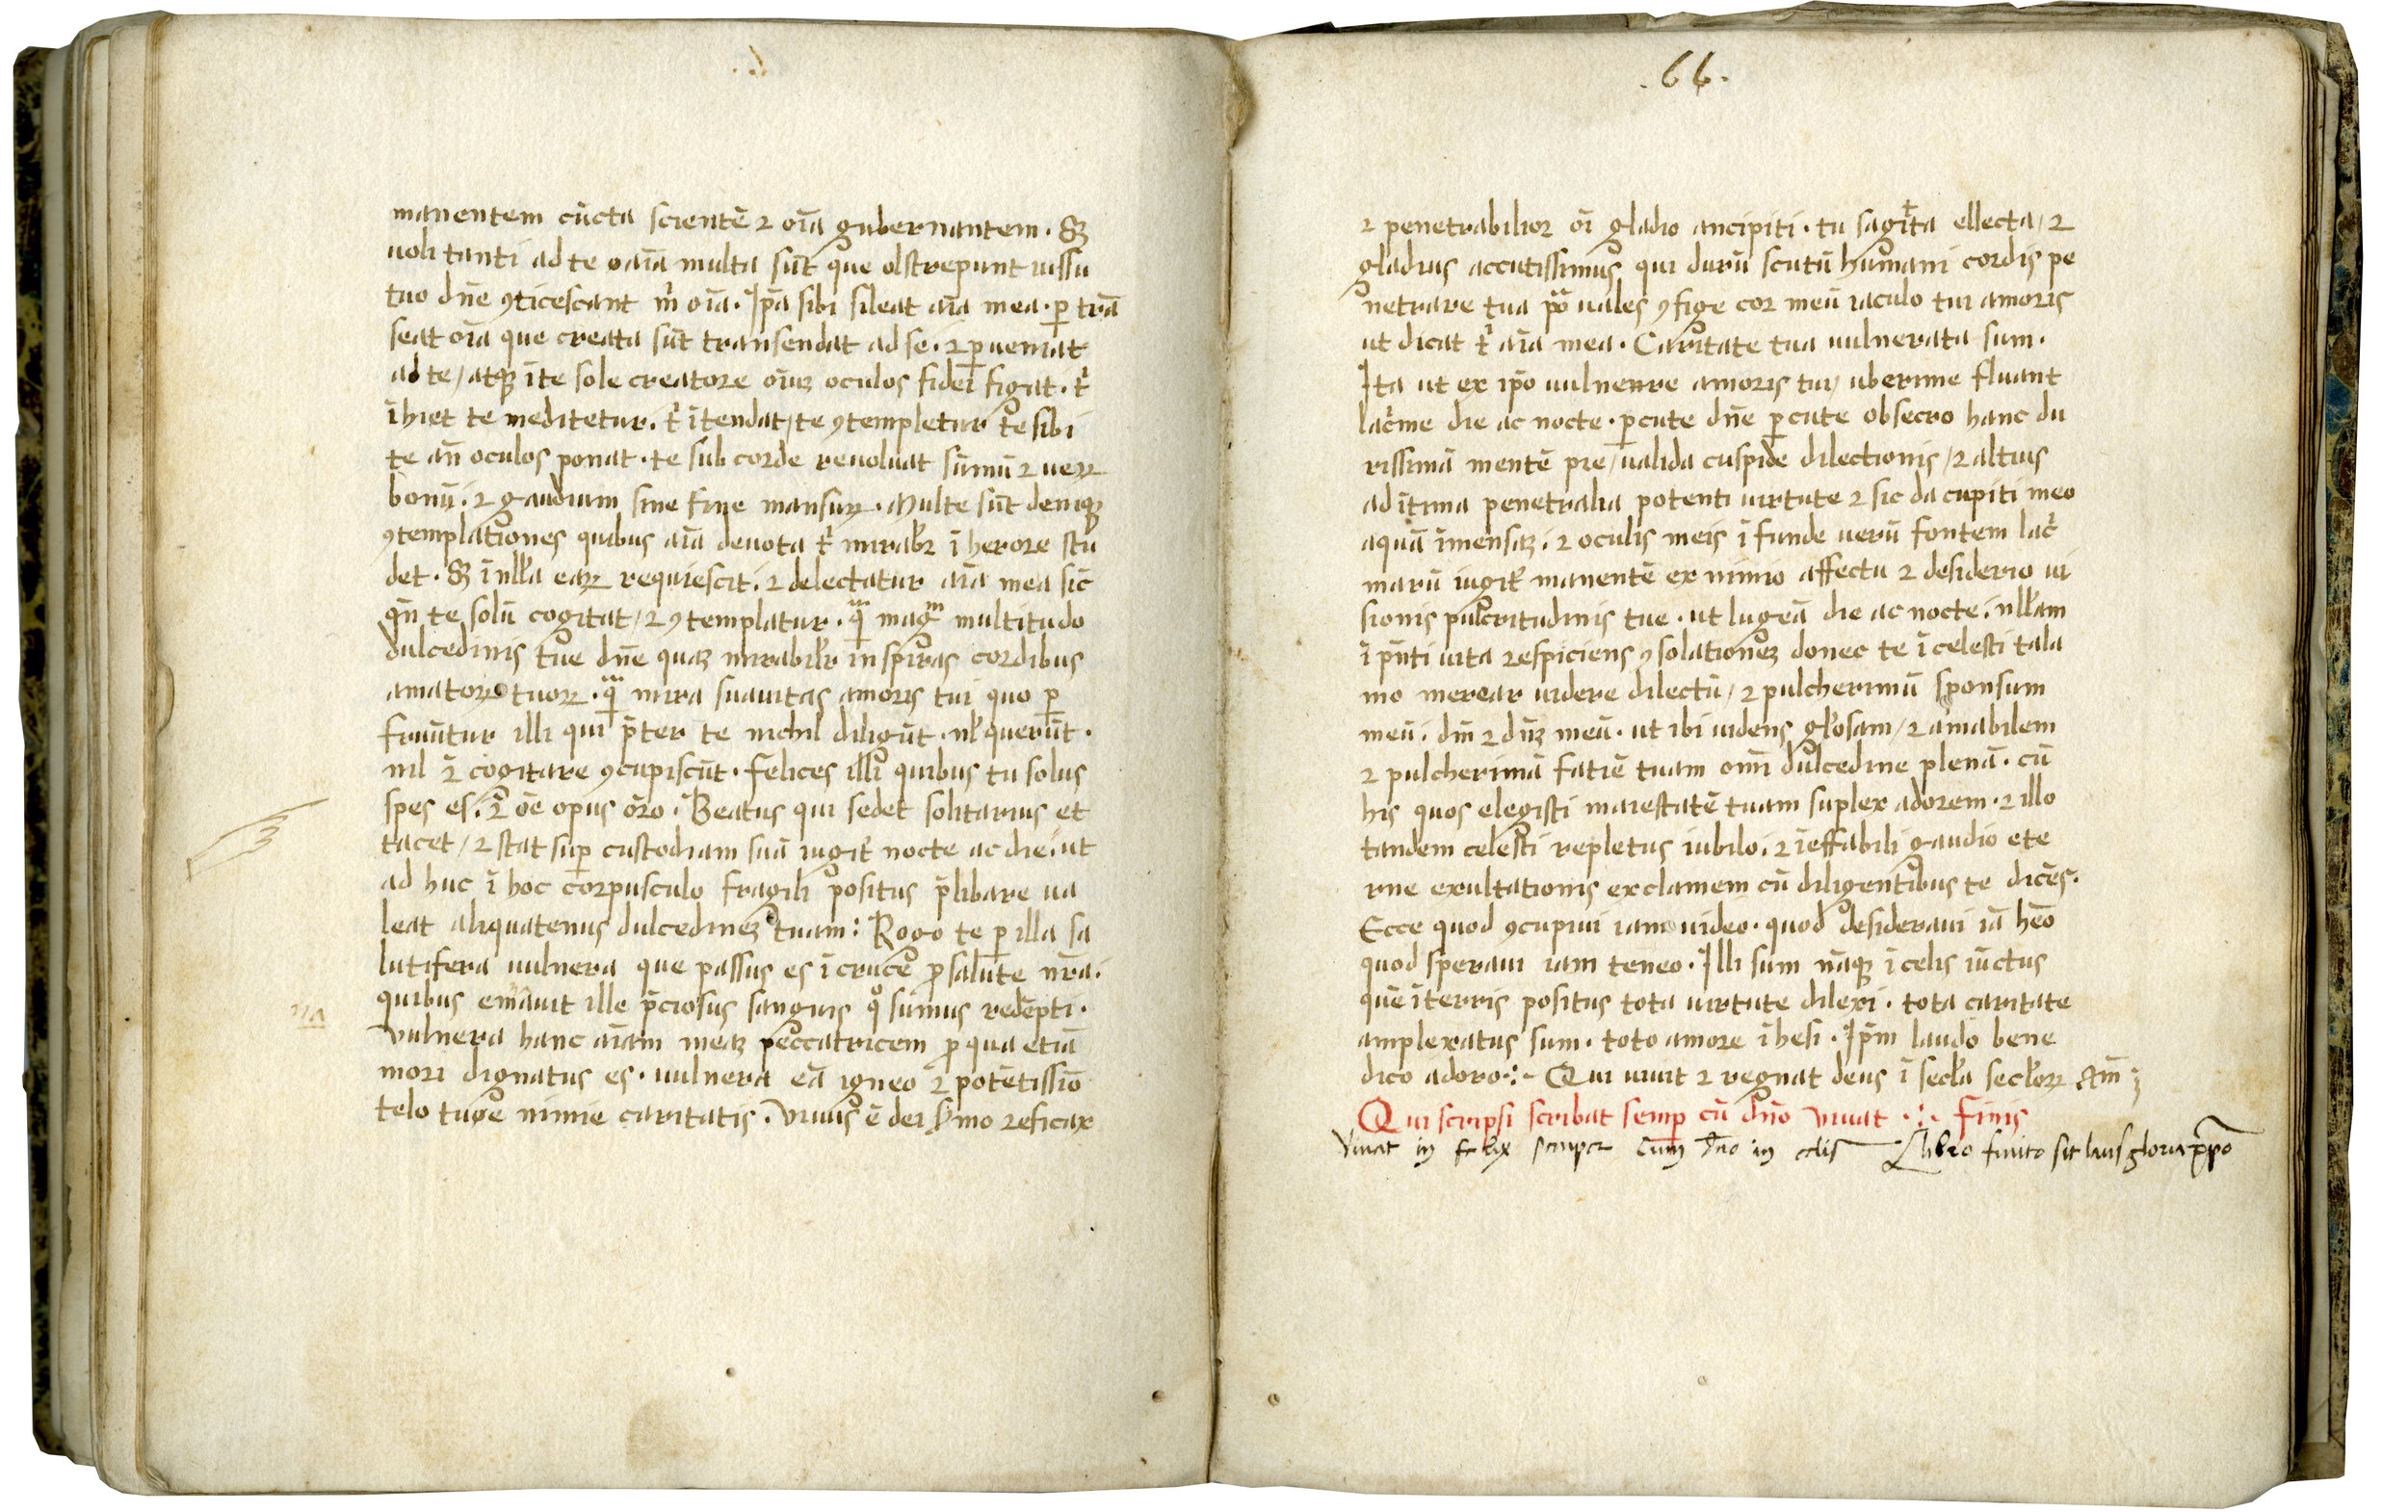 manentem cūcta scientē ⁊ oīa gubernantem. Sꝫ
uoli tanti ad te o aīa multa sūt que obstrepunt iussu
tuo dn̄e ꝯticescant m̄ oīa. Ip̄a sibi sileat aīa mea. ꝑ trā
seat oīa que creata sūt transendat ad se. ⁊ ꝑueniat
ad te / atqꝫ ī te sole creatore oiūꝫ oculos fidei figat. t̄
īhiet te meditetur. t̄ ītendat / te ꝯtempletur te sibi
te an̄ oculos ponat. te sub corde reuoluat sūmū ⁊ ueꝝ
bonū. ⁊ gaudium sine fine mansuꝝ. Multe sūt deniqꝫ
ꝯtemplationes quibus aīa deuota t̄ mirabꝉr ī herore stu
det. Sꝫ ī nꝉꝉa eaꝝ requiescit. ⁊ delectatur aīa mea sic
qn̄ te solū cogitat / ⁊ ꝯtemplatur. ꝙͫ magͫ multitudo
dulcedinis tue dn̄e quaꝫ mirabiꝉr inspiras cordibus
amatoꝝ tuoꝝ. ꝙͫ mira suauitas amoris tui quo ꝑ
fruūtur illi qui p̄ter te nichil diligūt. nꝉ querūt.
nil ⁊̄ cogitare ꝯcupiscūt. felices illi quibus tu solus
spes es. ⁊̄ oē opus ōro. Beatus qui sedet solitarius et
tacet / ⁊ stat suꝑ custodiam suā iugiꝉ nocte ac die. ut
ad huc ī hoc corpusculo fragili positus p̄libare ua
leat aliquatenus dulcedinēꝫ tuam: Rogo te ꝑ illa sa
lutifera uulnera que passus es ī cruce ꝓ salute nr̄a.
quibus emāuit ille p̄ciosus sanguis qͦ sumus redēpti.
na
Vulnera hanc aīam meaꝫ peccatricem ꝓ qua etiā
mori dignatus es. uulnera eā igneo ⁊ potētissīo
telo tuge nimie caritatis. Viuus ē dei s̄mo ⁊ eficax
.66.
⁊ penetrabilior oī gladio ancipiti. tu sagitta ellecta / ⁊
gladius accutissimus qui durū scutū humani cordis pe
netrare tua pōͣ uales ꝯfige cor meū iaculo tui amoris
ut dicat t̄ aīa mea. Caritate tua uulnerata sum.
Ita ut ex ip̄o uulnenre amoris tui / uberime fluant
lac̄me die ac nocte. ꝑcute dn̄e ꝑcute obsecro hanc du
rissimā mentē pre / ualida cuspide dilectionis / ⁊ altius
ad ītima penetralia potenti uirtute ⁊ sic da cupiti meo
aquā īmensaꝫ. ⁊ oculis meis ī funde uerū fontem lac̄
marū iugiꝉ manentē ex nimio affectu ⁊ desiderio ui
sionis pulcritudinis tue. ut lugeā die ac nocte. nꝉꝉam
ī pn̄ti uita respiciens ꝯsolationeꝫ donec te ī celesti tala
mo merear uidere dilectū / ⁊ pulcherimū sponsum
meū. dm̄ ⁊ dn̄ꝫ meū. ut ibi uidens gꝉosam / ⁊ amabilem
⁊ pulcherimā fatiē tuam omī dulcedine plenā. cū
his quos elegisti maiestatē tuam suplex adorem. ⁊ illo
tandem celesti repletus iubilo. ⁊ īeffabili gaudio ete
rne exultationis exclamem cū diligentibus te dicēs.
Ecce quod ꝯcupiui iam uideo. quod desideraui iā hēo
quod speraui iam teneo. Illi sum nāqꝫ ī celis iūctus
quē ī terris positus tota uirtute dilexi. tota caritate
amplexatus sum. toto amore ī hesi. Ip̄m laudo bene
dico adoro :~ Qui uiuit ⁊ regnat deus ī secꝉa secꝉoꝝ Am̄
Qui scripsi scribat semꝑ cū dn̄o viuat .:. finis
Viuat in felix semper cum dno in celis Libro finito sit laus gloria xp̄o